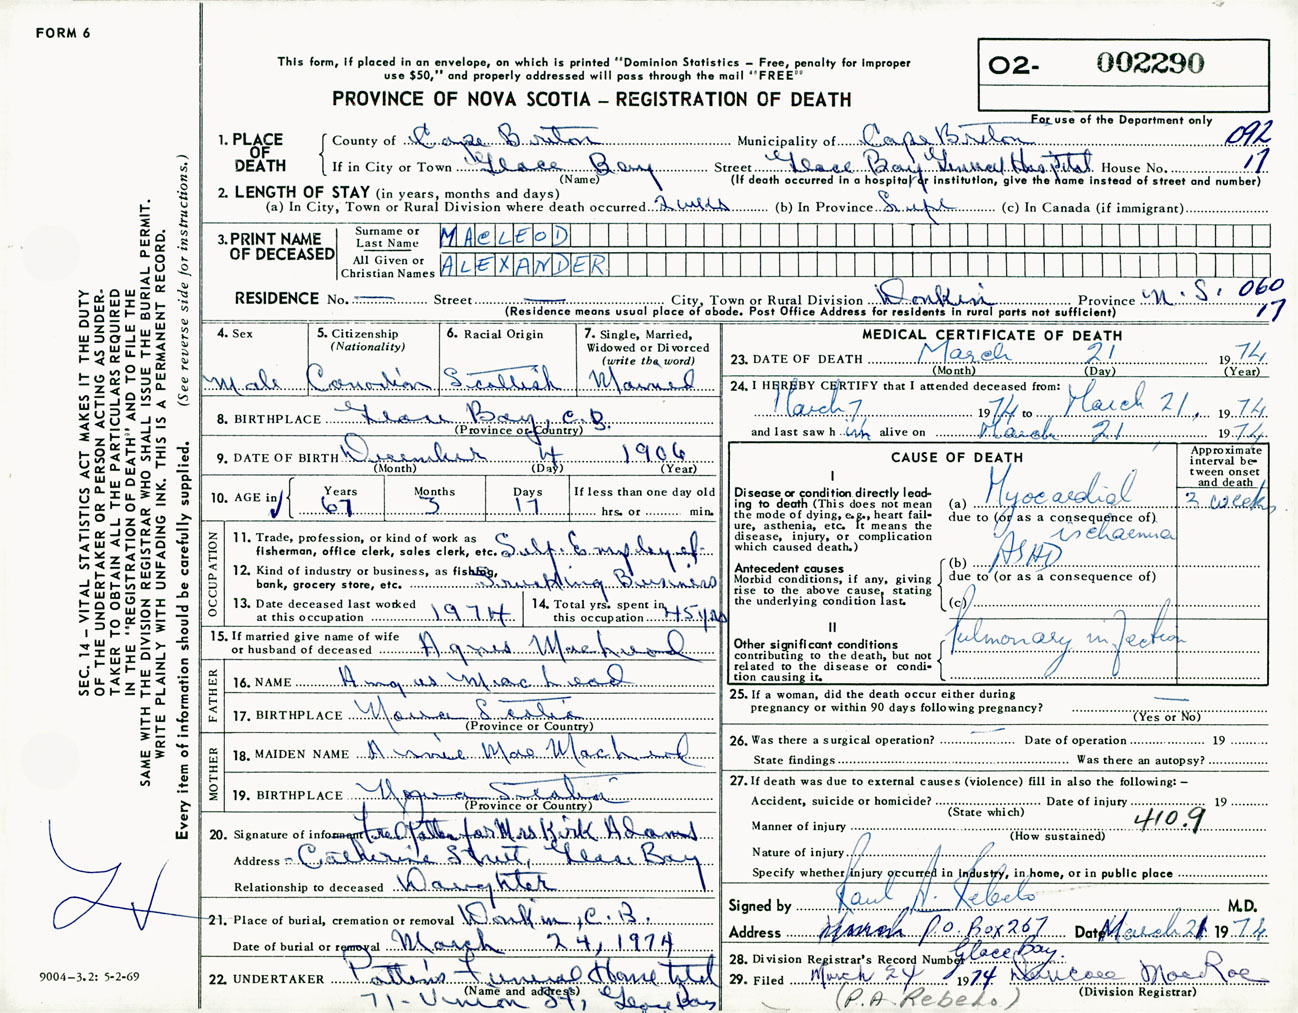 FORM 6
This form, if placed in an envelope, on which is printed "Dominion Statistics – Free, penalty for improper
use $50," and properly addressed will pass through the mail "FREE"
PROVINCE OF NOVA SCOTIA – REGISTRATION OF DEATH
02- 002290
For use of the Department only
092
17
1. PLACE OF DEATH
County of Cape Breton Municipality of Cape Breton
If in City or Town Glace Bay Street Glace Bay General Hospital House No.
(Name) (If death occurred in a hospital or institution, give the name instead of street and number)
2. LENGTH OF STAY (in years, months and days)
(a) In City, Town or Rural Division where death occurred 2 weeks (b) In Province Life (c) In Canada (if immigrant)
3. PRINT NAME OF DECEASED
Surname or Last Name MACLEOD
All Given or Christian Names ALEXANDER
RESIDENCE No. — Street — City, Town or Rural Division Donkin Province N.S. 060
17
(Residence means usual place of abode. Post Office Address for residents in rural parts not sufficient)
4. Sex Male
5. Citizenship (Nationality) Canadian
6. Racial Origin Scottish
7. Single, Married, Widowed or Divorced (write the word) Married
8. BIRTHPLACE Glace Bay, C.B.
(Province or Country)
9. DATE OF BIRTH December 4 1906
(Month) (Day) (Year)
10. AGE in Years 67 Months 3 Days 17 If less than one day old
hrs. or min.
OCCUPATION
11. Trade, profession, or kind of work as
fisherman, office clerk, sales clerk, etc. Self-Employed
12. Kind of industry or business, as fishing,
bank, grocery store, etc. Trucking Business
13. Date deceased last worked
at this occupation 1974
14. Total yrs. spent in
this occupation 45 yrs
15. If married give name of wife
or husband of deceased Agnes MacLeod
FATHER
16. NAME Angus MacLeod
17. BIRTHPLACE Nova Scotia
(Province or Country)
MOTHER
18. MAIDEN NAME Annie Mae MacLeod
19. BIRTHPLACE Nova Scotia
(Province or Country)
20. Signature of informant for Mrs Kirk Adams
Address - Catherine Street, Glace Bay
Relationship to deceased Daughter
21. Place of burial, cremation or removal Donkin, C.B.
Date of burial or removal March 24, 1974
22. UNDERTAKER Patten's Funeral Home Ltd
(Name and address)
71 - Union St, Glace Bay
MEDICAL CERTIFICATE OF DEATH
23. DATE OF DEATH March 21 1974
(Month) (Day) (Year)
24. I HEREBY CERTIFY that I attended deceased from:
March 7 1974 to March 21, 1974
and last saw h im alive on March 21 1974
CAUSE OF DEATH
Approximate interval between onset and death
I
Disease or condition directly lead-
ing to death (This does not mean
the mode of dying, e.g., heart fail-
ure, asthenia, etc. It means the
disease, injury, or complication
which caused death.)
(a) Myocardial 2 weeks
due to (or as a consequence of)
ischaemia
Antecedent causes
Morbid conditions, if any, giving
rise to the above cause, stating
the underlying condition last.
(b) ASHD
due to (or as a consequence of)
(c)
II
Other significant conditions
contributing to the death, but not
related to the disease or condi-
tion causing it.
Pulmonary infection
25. If a woman, did the death occur either during
pregnancy or within 90 days following pregnancy? —
(Yes or No)
26. Was there a surgical operation? — Date of operation 19
State findings Was there an autopsy?
27. If death was due to external causes (violence) fill in also the following: –
Accident, suicide or homicide? Date of injury 19
(State which)
Manner of injury 410.9
(How sustained)
Nature of injury
Specify whether injury occurred in industry, in home, or in public place
Signed by Paul A. Rebelo M.D.
Address P.O. Box 267 Date March 21 1974
Glace Bay
28. Division Registrar's Record Number
29. Filed March 24 1974 MacRae
(Division Registrar)
(P.A. Rebelo)
SEC. 14 – VITAL STATISTICS ACT MAKES IT THE DUTY
OF THE UNDERTAKER OR PERSON ACTING AS UNDER-
TAKER TO OBTAIN ALL THE PARTICULARS REQUIRED
IN THE "REGISTRATION OF DEATH" AND TO FILE THE
SAME WITH THE DIVISION REGISTRAR WHO SHALL ISSUE THE BURIAL PERMIT.
WRITE PLAINLY WITH UNFADING INK. THIS IS A PERMANENT RECORD.
Every item of information should be carefully supplied. (See reverse side for instructions.)
9004-3.2: 5-2-69